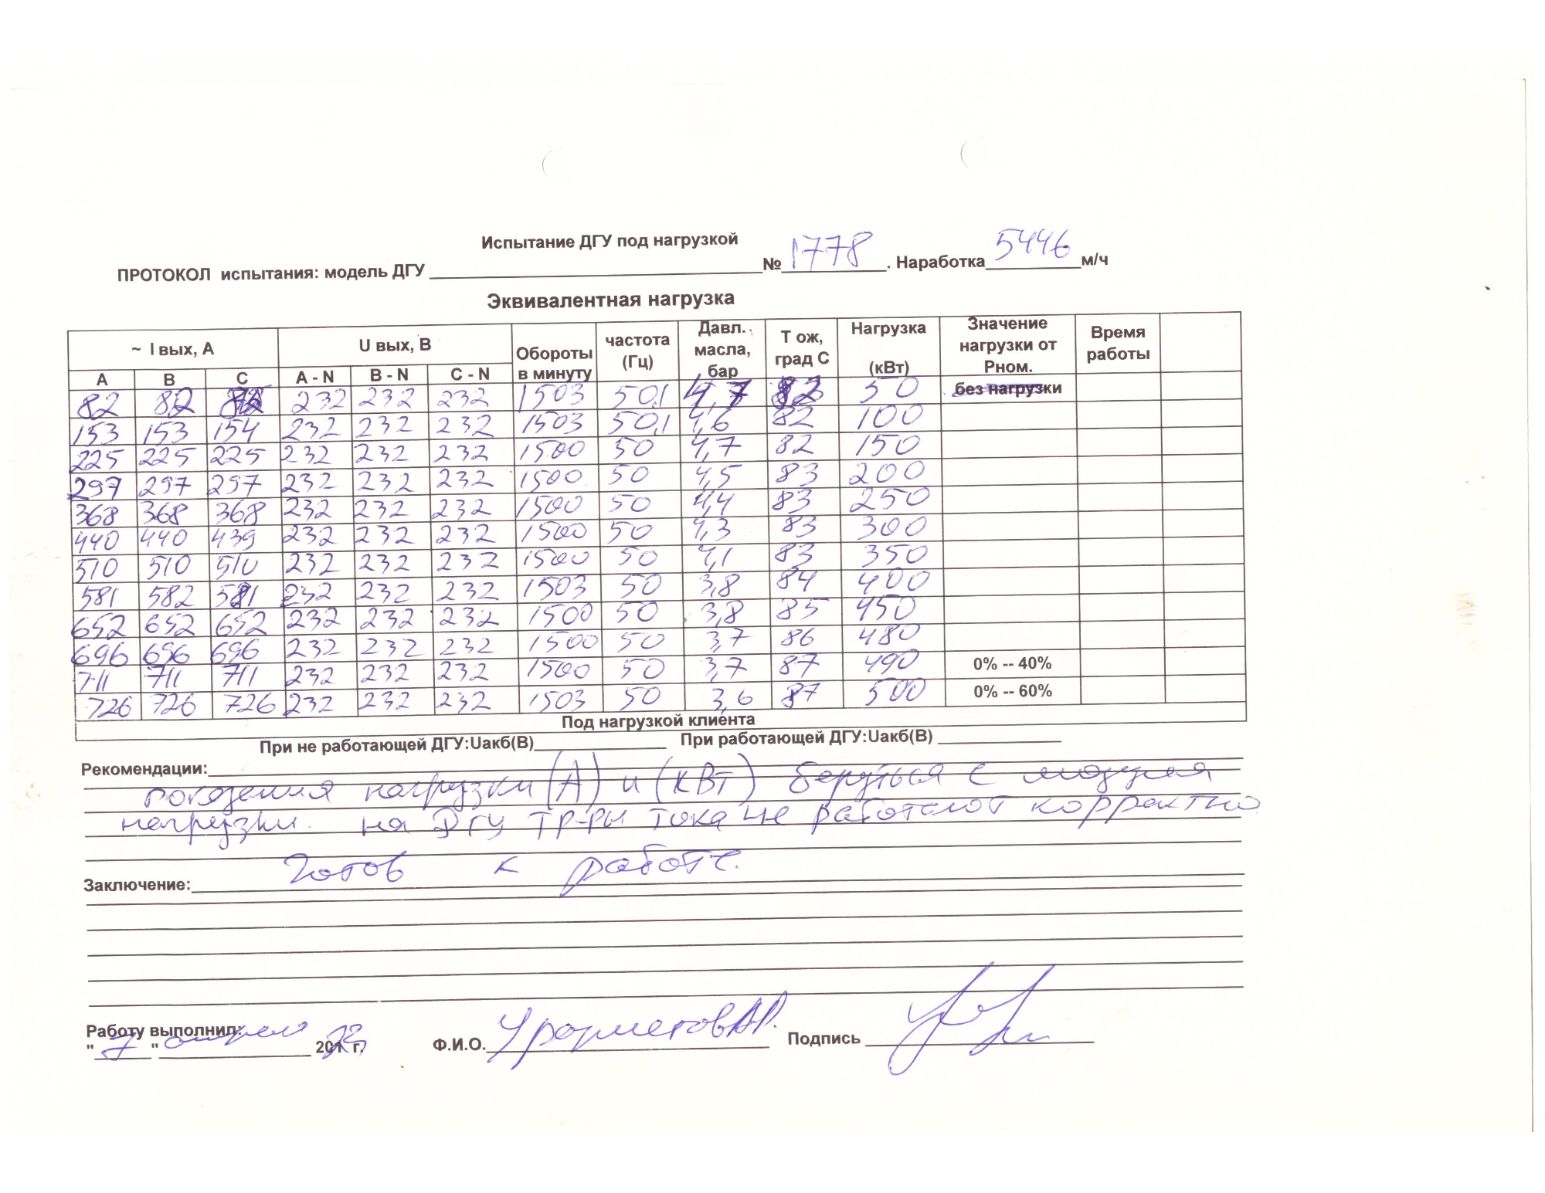 Испытание ДГУ под нагрузкой
ПРОТОКОЛ испытания: модель ДГУ № 1778 . Наработка 5446 м/ч
Эквивалентная нагрузка
~ I вых, А U вых, В Обороты в минуту частота (Гц) Давл. масла, бар Т ож, град С Нагрузка (кВт) Значение нагрузки от Рном. Время работы
А В С А - N В - N С - N
82 82 82 232 232 232 1503 50,1 4,7 82 50 без нагрузки
153 153 154 232 232 232 1503 50,1 4,6 82 100
225 225 225 232 232 232 1500 50 4,7 82 150
297 297 297 232 232 232 1500 50 4,5 83 200
368 368 368 232 232 232 1500 50 4,4 83 250
440 440 439 232 232 232 1500 50 4,3 83 300
510 510 510 232 232 232 1500 50 4,1 83 350
581 582 581 232 232 232 1503 50 3,8 84 400
652 652 652 232 232 232 1500 50 3,8 85 450
696 696 696 232 232 232 1500 50 3,7 86 480
711 711 711 232 232 232 1500 50 3,7 87 490 0% -- 40%
726 726 726 232 232 232 1503 50 3,6 87 500 0% -- 60%
Под нагрузкой клиента
При не работающей ДГУ:Uакб(В) При работающей ДГУ:Uакб(В)
Рекомендации:
нагрузки (А) и (кВт) беруться с модуля
нагрузки. на ДГУ тр-ры тока не работают корректно
Заключение: Готов к работе.
Работу выполнил:
" 7 " апреля 201 г. Ф.И.О. Подпись